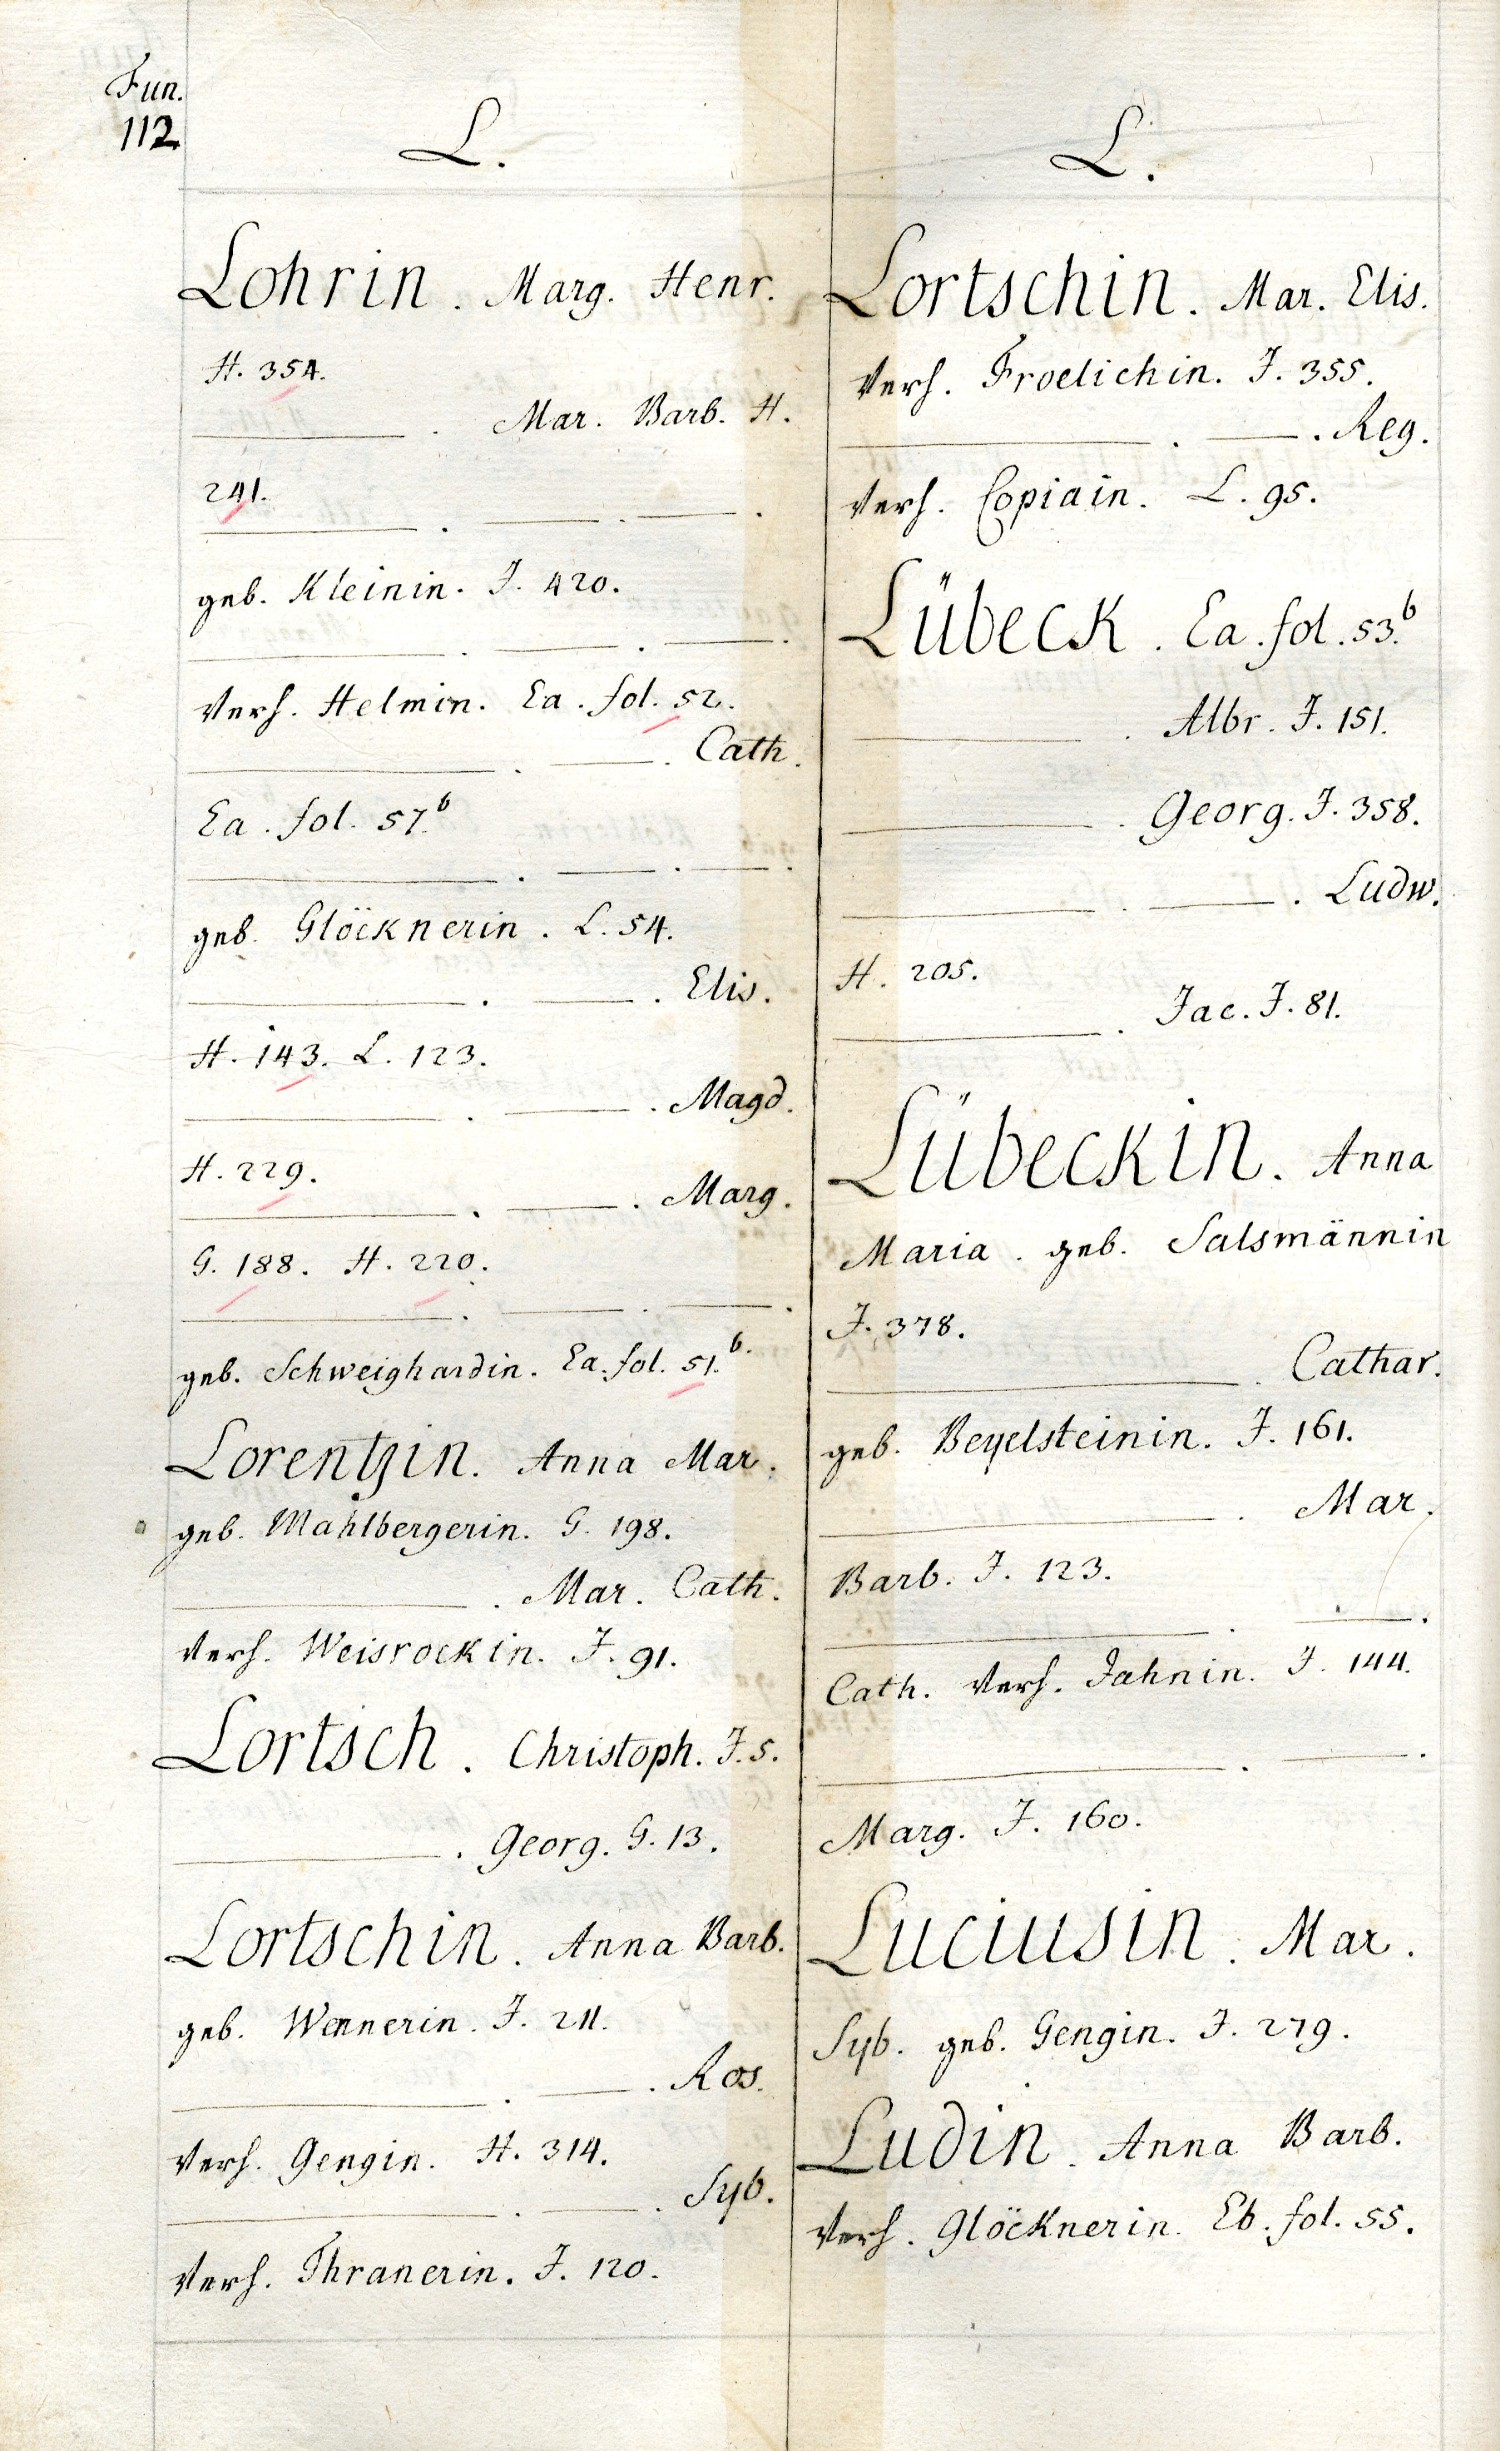 Fun.
112
L.
Lohrin. Marg. Henr.
H. 354.
———. Mar. Barb. H.
241.
———. ———. ———.
geb. Kleinin. J. 420.
———. ———. ———.
Verh. Helmin. Ea. fol. 52.
———. ———. Cath.
Ea. fol. 57.b
———. ———. ———.
geb. Glöcknerin. L. 54.
———. ———. Elis.
H. 143. L. 123.
———. ———. Magd.
H. 229.
———. ———. Marg.
G. 188. H. 220.
———. ———. ———.
geb. Schweighardin. Ea. fol. 51.b.
Lorentzin. Anna Mar.
geb. Mahlbergerin. G. 198.
———. Mar. Cath.
Verh. Weisrockin. J. 91.
Lortsch. Christoph. J. 5.
———. Georg. G. 13.
Lortschin. Anna Barb.
geb. Wennerin. J. 211.
———. ———. Ros.
Verh. Gengin. H. 314.
———. ———. Syb.
Verh. Thranerin. J. 120.
L.
Lortschin. Mar. Elis.
Verh. Froelichin. J. 355.
———. ———. Reg.
Verh. Copiain. L. 95.
Lübeck. Ea. fol. 53.b
———. Albr. J. 151.
———. Georg. J. 358.
———. ———. Ludw.
H. 205.
———. Jac. J. 81.
Lübeckin. Anna
Maria. geb. Salsmännin
J. 378.
———. Cathar.
geb. Beyelsteinin. J. 161.
———. Mar.
Barb. J. 123.
———. ———.
Cath. Verh. Jahnin. J. 144.
———. ———.
Marg. J. 160.
Luciusin. Mar.
Syb. geb. Gengin. J. 279.
Ludin. Anna Barb.
Verh. Glöcknerin. Eb. fol. 55.